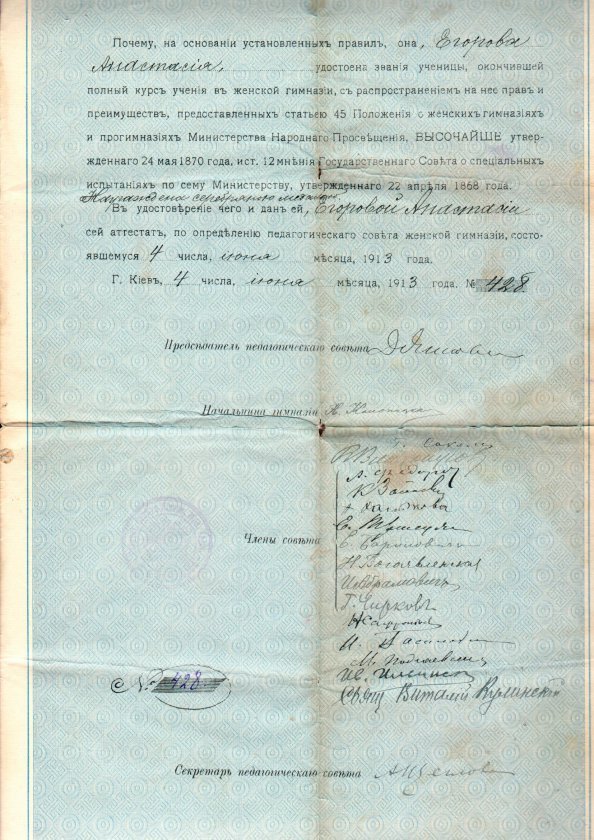 Почему, на основаніи установленныхъ правилъ, она, Егорова
Анастасія, удостоена званія ученицы, окончившей
полный курсъ ученія въ женской гимназіи, съ распространеніемъ на нее правъ и
преимуществъ, предоставленныхъ статьею 45 Положенія о женскихъ гимназіяхъ
и прогимназіяхъ Министерства Народнаго Просвѣщенія, ВЫСОЧАЙШЕ утвер-
жденнаго 24 мая 1870 года, и ст. 12 мнѣнія Государственнаго Совѣта о спеціальныхъ
испытаніяхъ по сему Министерству, утвержденнаго 22 апрѣля 1868 года.
Награждена серебряною медалью
Въ удостовѣреніе чего и данъ ей, Егоровой Анастасіи
сей аттестатъ, по опредѣленію педагогическаго совѣта женской гимназіи, состо-
явшемуся 4 числа, іюня мѣсяца, 1913 года.
Г. Кіевъ, 4 числа, іюня мѣсяца, 1913 года. № 428
Предсѣдатель педагогическаго совѣта
Начальница гимназіи
Члены совѣта
Н. Богоявленская
И. Абрамовичъ
Г. Чирковъ
Свящ Виталій Кулинскій
№ 428
Секретарь педагогическаго совѣта